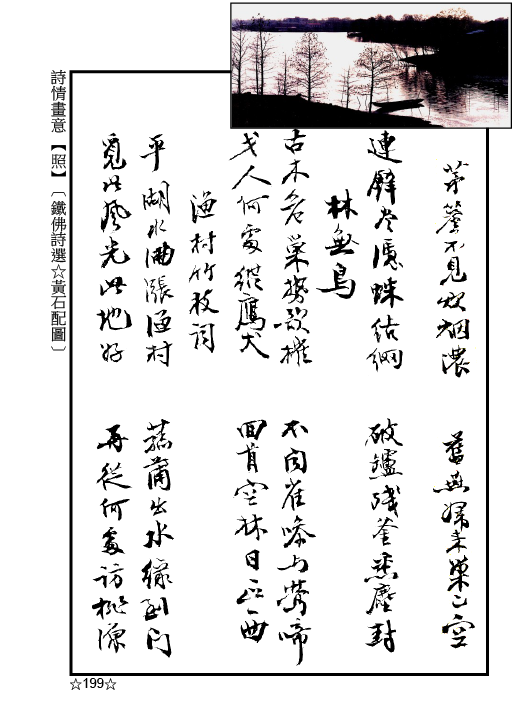 茅簷不見炊烟濃 舊燕歸來巢已空
蛛結網 破鑪殘釜悉塵封
林無鳥
古木危巢勢欲摧 不聞雀噪與鶯啼
弋人何處縱鷹犬 回首空林日正西
漁村竹枝詞
平湖水滿漲漁村 菰蒲出水綠到門
覓此風光此地好 再從何處訪桃源
詩情畫意【照】〔鐵佛詩選☆黃石配圖〕
☆199☆